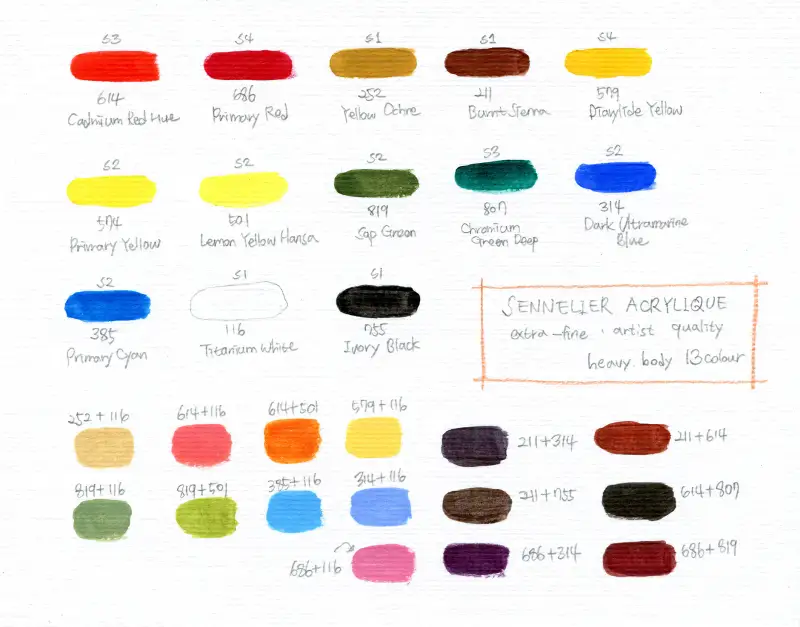 S3
614
Cadmium Red Hue
S4
686
Primary Red
S1
252
Yellow Ochre
S1
211
Burnt Sienna
S4
579
Diarylide Yellow
S2
574
Primary Yellow
S2
501
Lemon Yellow Hansa
S2
819
Sap Green
S3
807
Chromium
Green Deep
S2
314
Dark Ultramarine
Blue
S2
385
Primary Cyan
S1
116
Titanium White
S1
755
Ivory Black
SENNELIER ACRYLIQUE
extra-fine · artist quality
heavy body 13colour
252+116
614+116
614+501
579+116
211+314
211+614
819+116
819+501
385+116
314+116
211+755
614+807
686+116
686+314
686+819